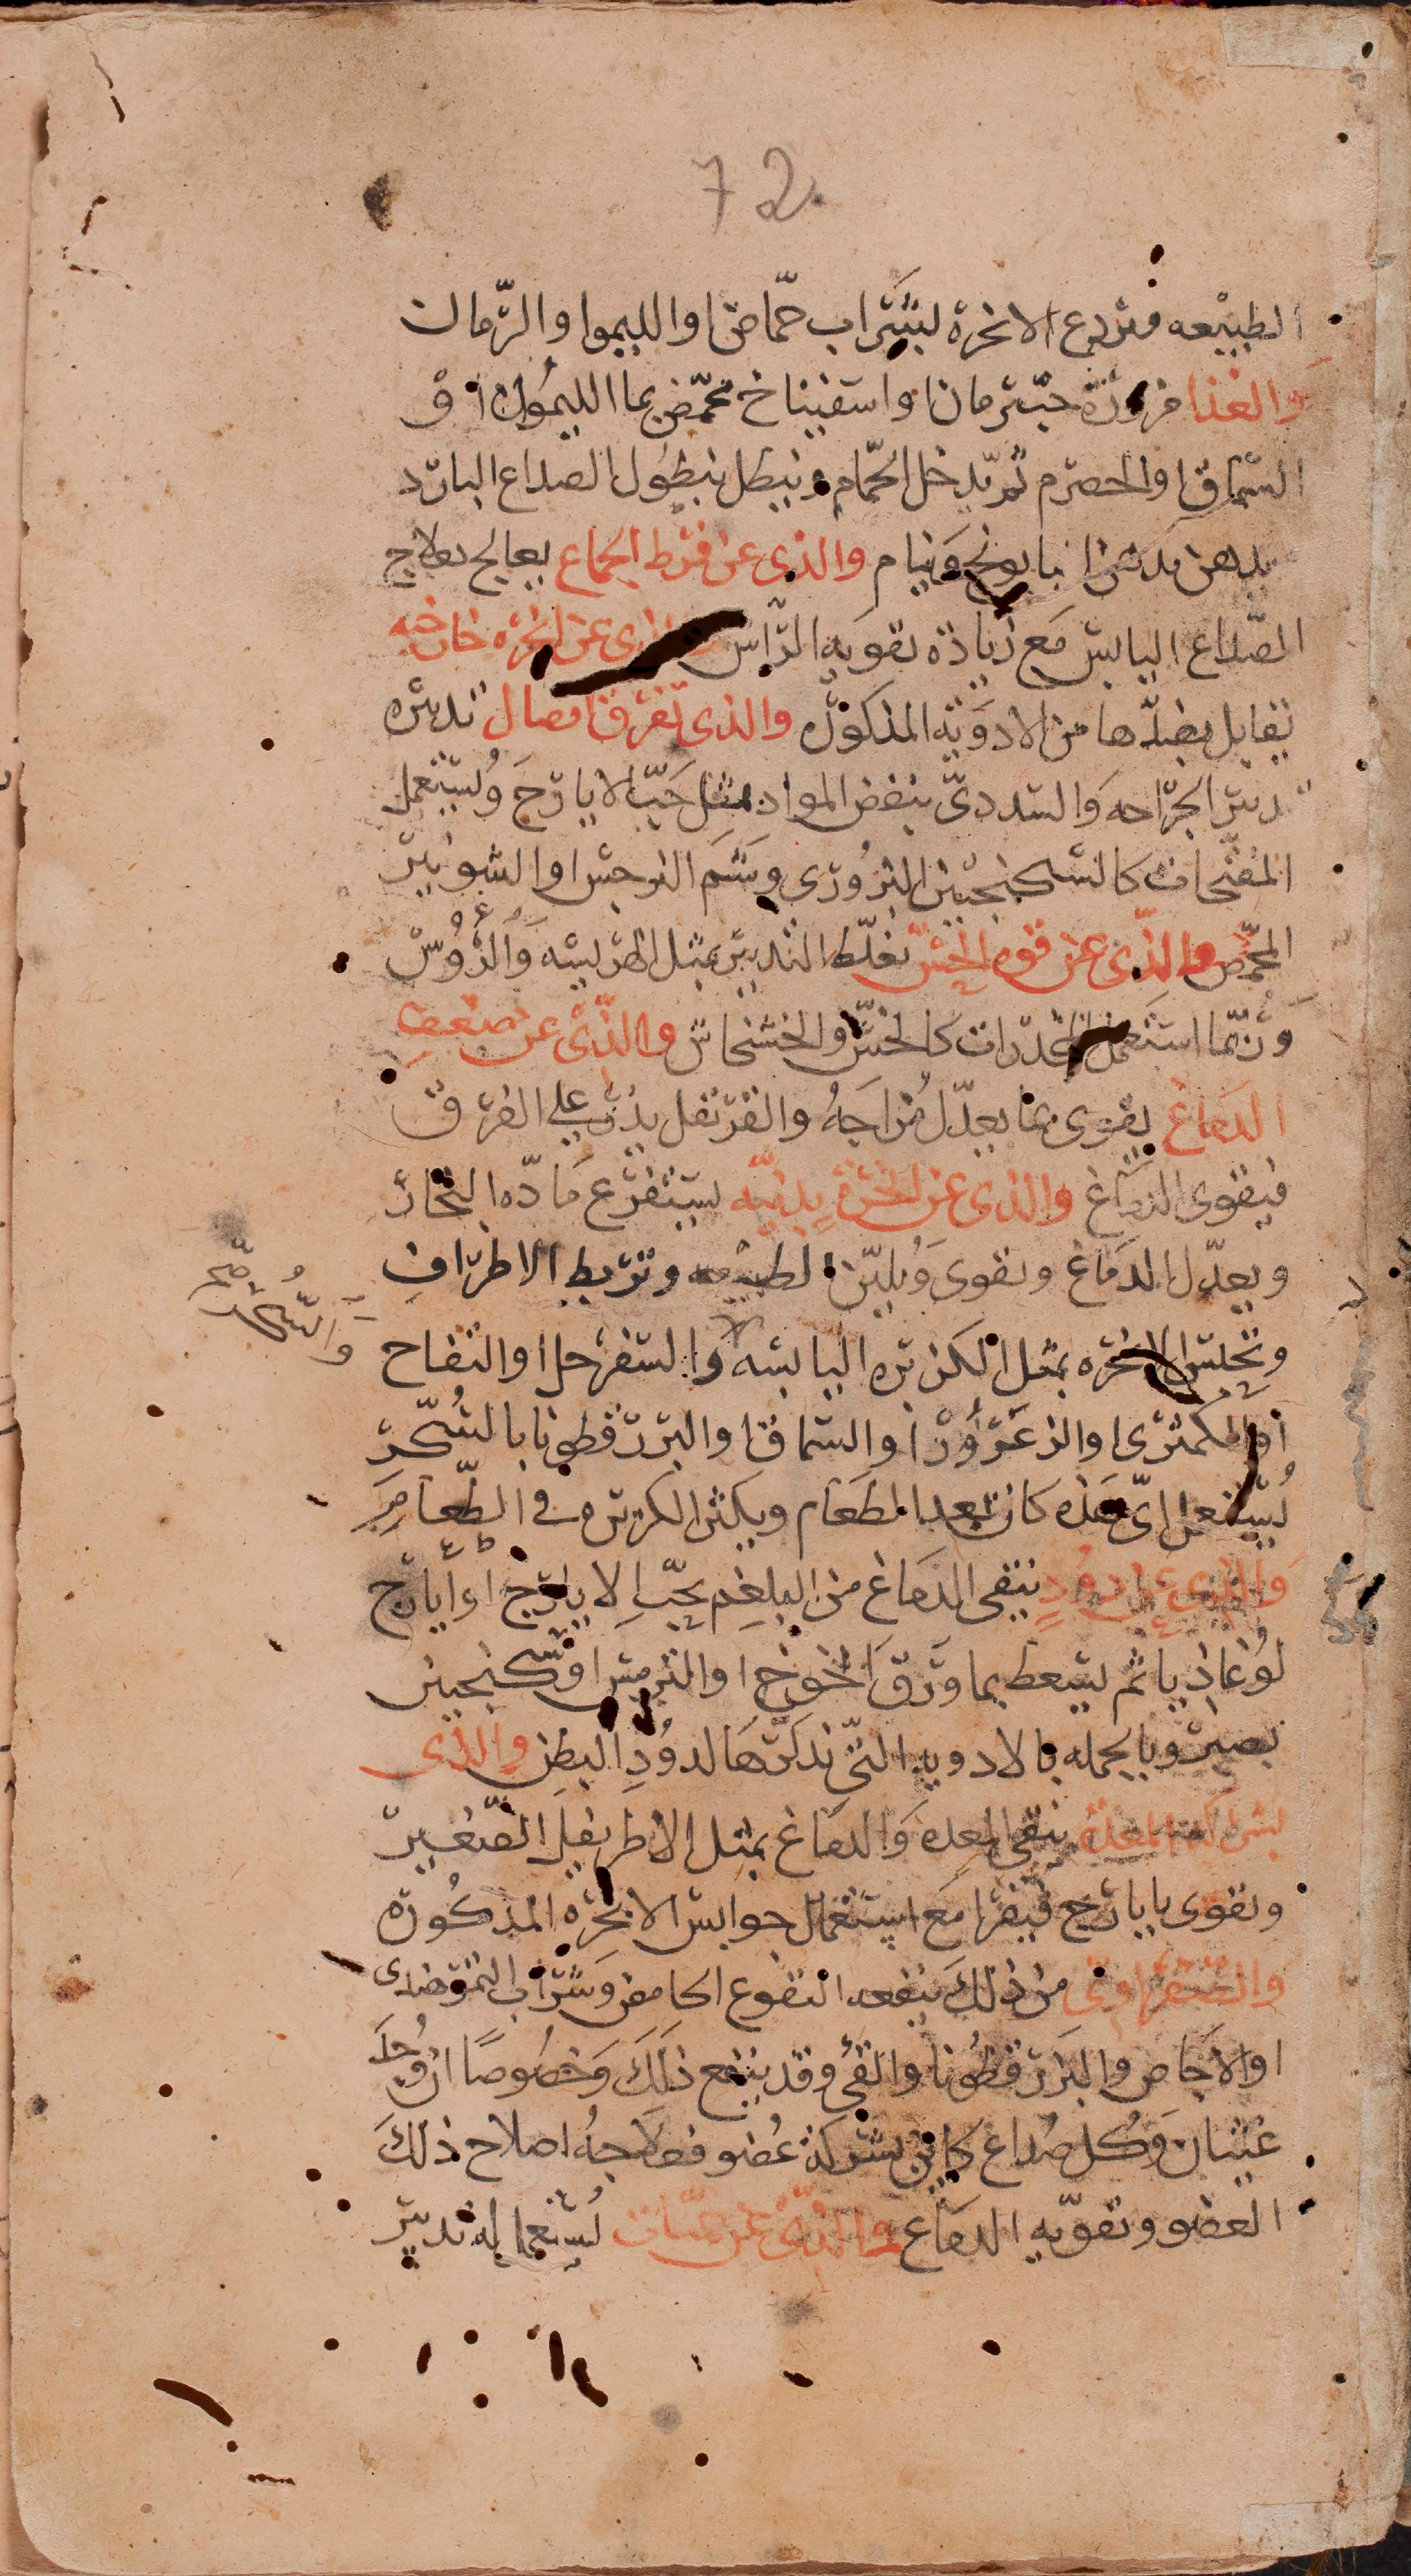 72
الطبيعه وتردع الابخرة بشراب حمّاض او الليموا والرّمان
والغذا مزورّة حبّ رمان او اسفيناخ محمّض بما الليمون اوْ
السّماق او الحصرم ثم يدخل الحّمام وينطل بنطُول الصداع البارد
يدهن بدهن البابونج وَينام والذي عن فرط الجماع يعالج بعلاج
الصّداع اليابس مَع زيادة تقويه الرّاسْ والذي عن ابخرة خارجيه
يقابل بضدّها من الادوَيَه المذكورَه والذي تفرّق اتصال تدبيره
تدبير الجرّاحه وَالسددىّ ينفض المواد بمثل حَبّ الايارجَ وُيستعمل
المفتّحات كالسّكنجبين البزُورى وشَم النرجس او الشونيز
المحمّص والذي عن قوه الحسّ يغلّظ التدبير بمثل الهريسَه وَالرُّوُسْ
وَرُبّما استعمل المخدّرات كالخسّ والخشخاش والذّى عن ضعف
الدمَاغ يقوى بما يعدّل مُزاجَهُ والقرنفل يذرّ على الفرق
فيقوى الدمَاغ والذي عن ابخرَةٍ بدنيّه يستفرغ مَادّه البخار
ويعدّل الدمَاغ ويقوى وَيُليّن الطبيعه وتربط الاطرَاف
وتحبس الابخره بمثل الكزبره اليابسَه والسفرجل او التفاح
او الكمّثرى او الزعَرُوْر او السّماق او البزر قطونا بالسُكّرْ
يُستعمل اىّ هذه كان بعد الطعَام ويكثر الكزبره فى الطّعَامِ
وَالذي عن دُودٍ ينقى الدمَاغ من البلغم بحَبّ الايارج او ايارج
لوُغاذيا ثم يسعط بما وَرَق الخوخ او الترمس او سكنجبين
بصبر وبالجمله بالادويه التّى نذكرّهَا لدُودِ البطن والذى
بشركه المعدة ينقى المعده وَالدمَاغ بمثل الاطريفل الصّغيرّ
ويقوى بايارج فيقرا مَع استعمَال حوابس الابخرَه المذكُورة
وَالصفراوى من ذلكَ ينفعه النقوع الحامض وَشرَاب التمر هندى
او الاجَاص والبَزر قطُونا والقىُ وقد ينفع ذلِكَ وَخصُوصًا ان وُجدَ
غثيَان وَكُل صُداع كاين بشركة عُضو فعلاجهُ اصلاح ذلكَ
العضو وتقويه الدمَاغ والذّى عن بحران يُستعمل له تدبير